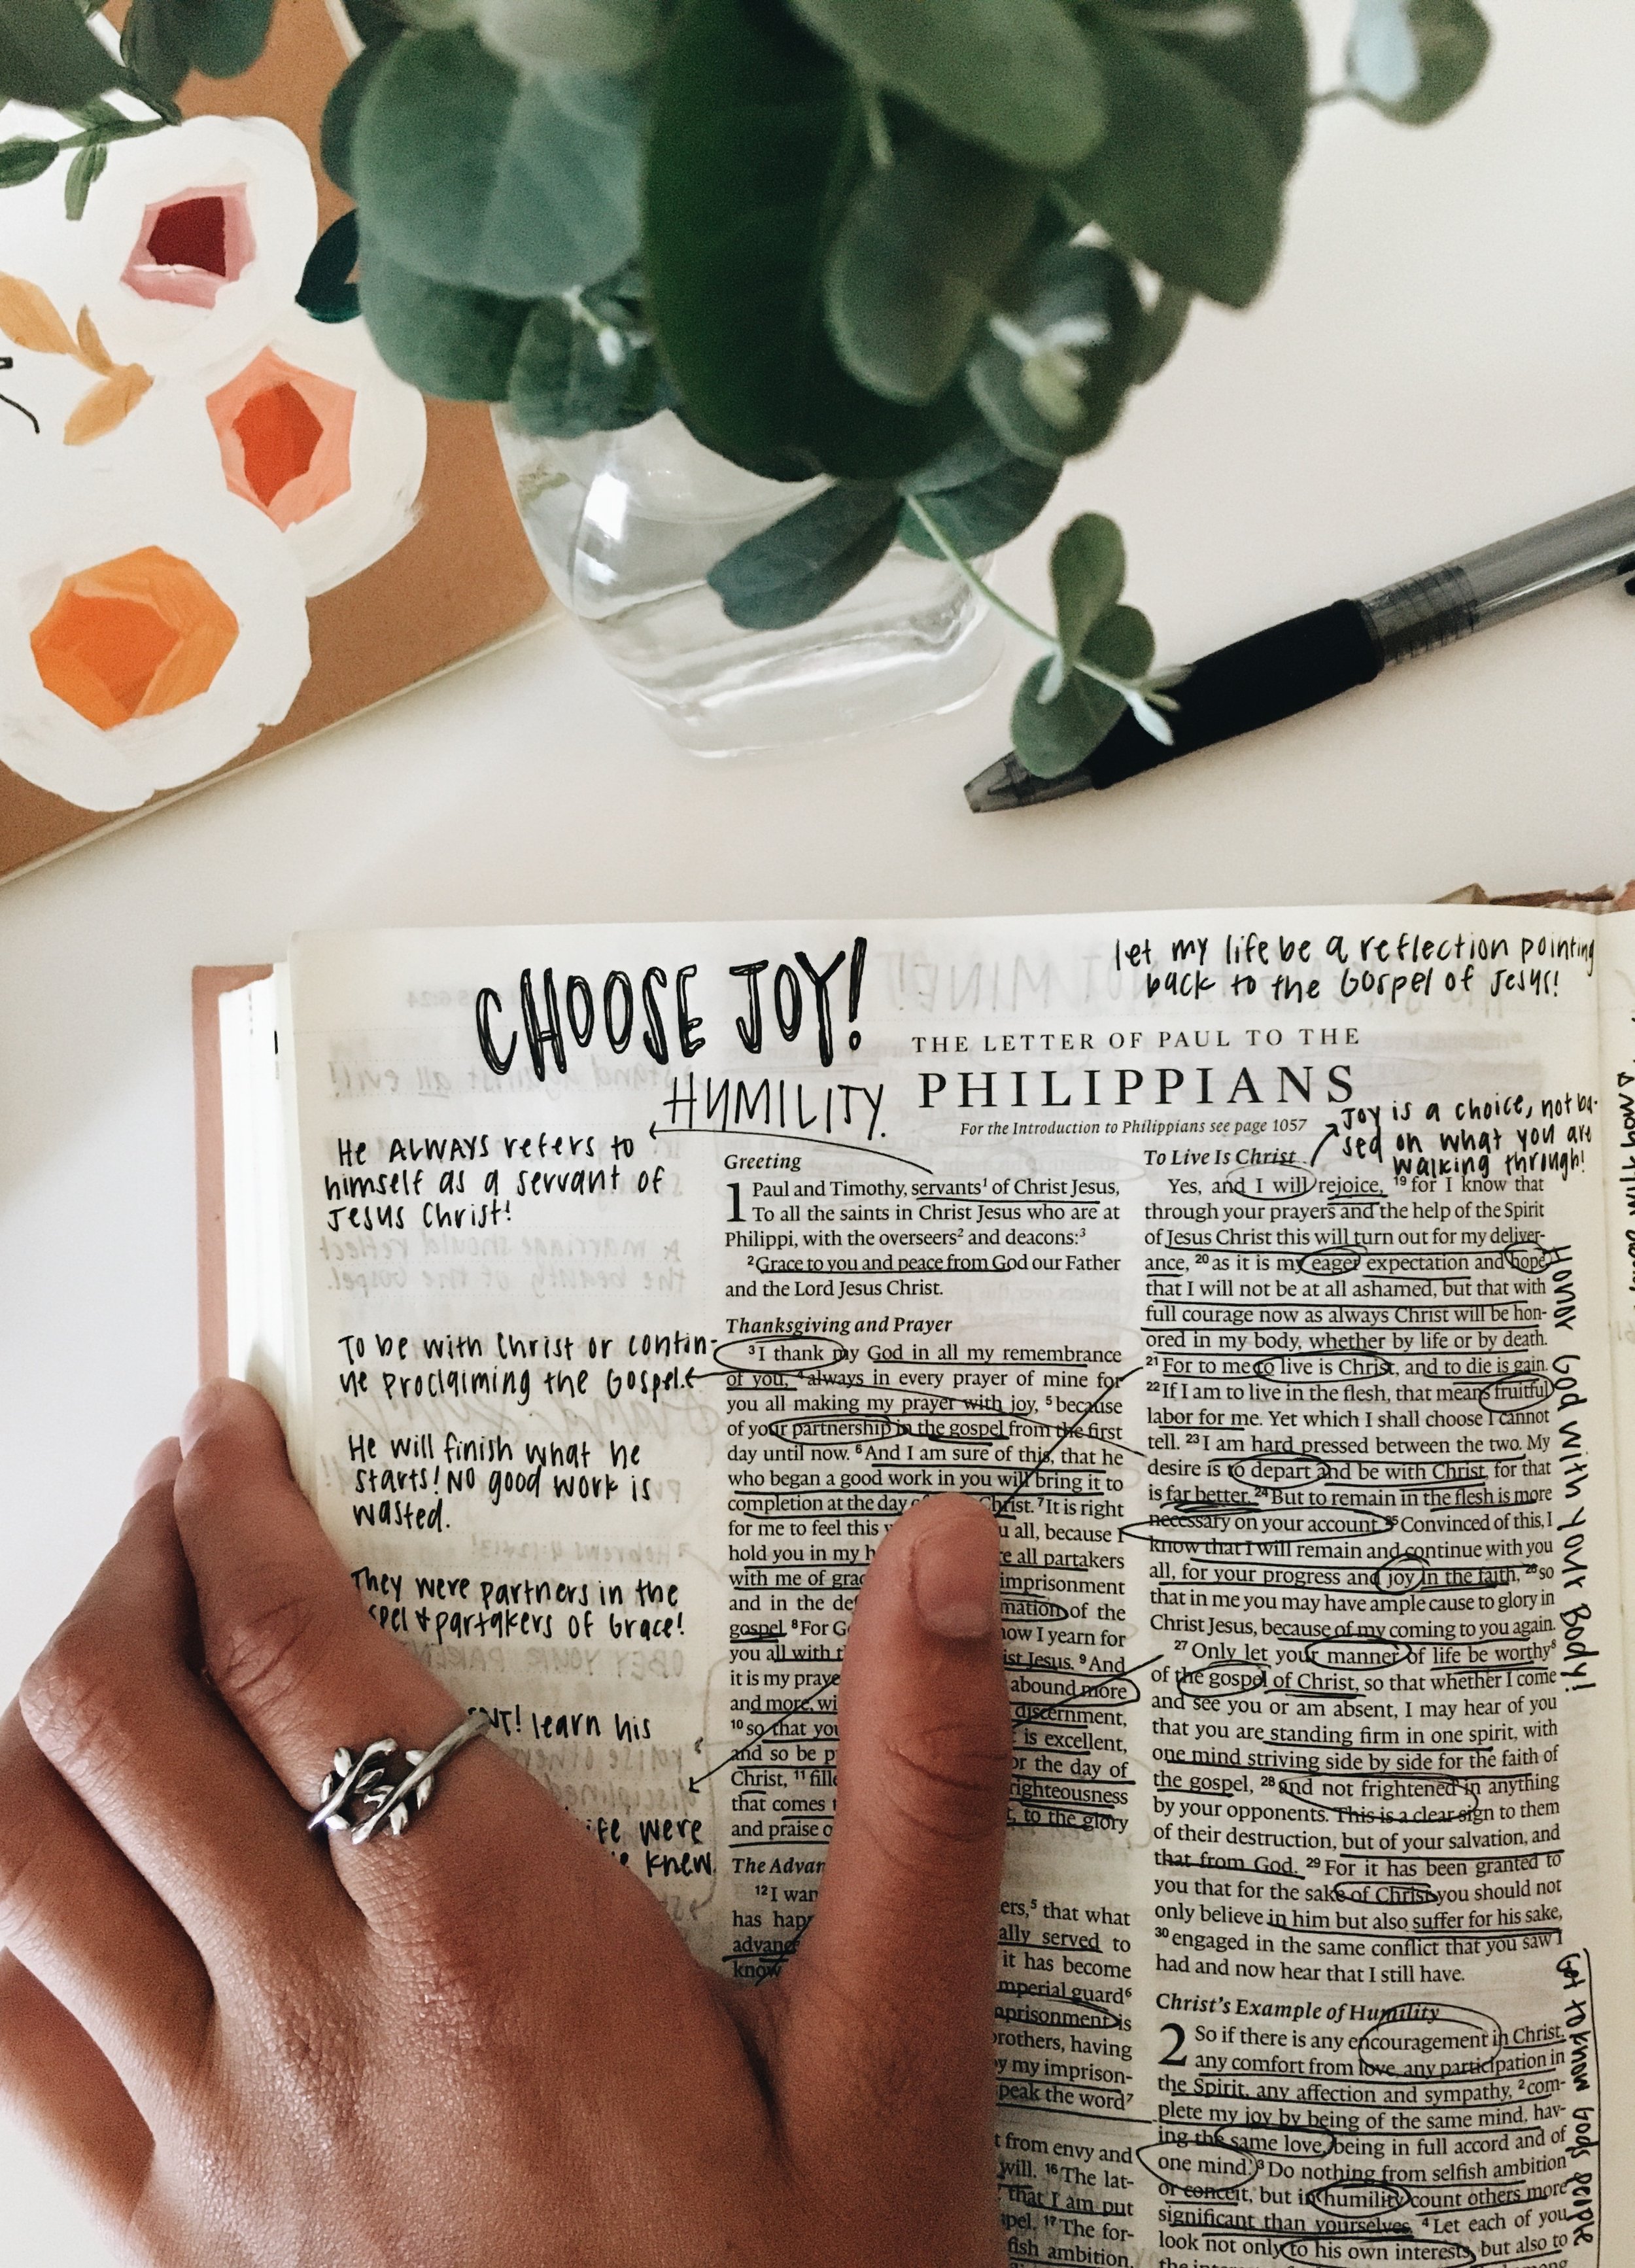 CHOOSE JOY!
HUMILITY.
let my life be a reflection pointing
back to the Gospel of Jesus!
THE LETTER OF PAUL TO THE
PHILIPPIANS
For the Introduction to Philippians see page 1057
Joy is a choice, not ba-
sed on what you are
walking through!
He ALWAYS refers to
himself as a servant of
Jesus Christ!
To be with Christ or contin-
ue proclaiming the Gospel.
He will finish what he
starts! No good work is
wasted.
They were partners in the
& partakers of Grace!
learn his
were
knew.
Greeting
1 Paul and Timothy, servants¹ of Christ Jesus,
To all the saints in Christ Jesus who are at
Philippi, with the overseers² and deacons:³
²Grace to you and peace from God our Father
and the Lord Jesus Christ.
Thanksgiving and Prayer
³I thank my God in all my remembrance
of you, ⁴always in every prayer of mine for
you all making my prayer with joy, ⁵because
of your partnership in the gospel from the first
day until now. ⁶And I am sure of this, that he
who began a good work in you will bring it to
completion at the day Christ. ⁷It is right
for me to feel this u all, because I
hold you in my h e all partakers
with me of grac imprisonment
and in the de mation of the
gospel. ⁸For G ow I yearn for
you all with ist Jesus. ⁹And
it is my praye abound more
and more, wi discernment,
¹⁰so that you is excellent,
and so be p or the day of
Christ, ¹¹fille righteousness
that comes t, to the glory
and praise o
The Advan
¹²I wan ers,⁵ that what
has hap ally served to
advanc it has become
know mperial guard⁶
prisonment is
rothers, having
y my imprison-
peak the word⁷
t from envy and
will. ¹⁶The lat-
that I am put
pel. ¹⁷The for-
fish ambition,
To Live Is Christ
Yes, and I will rejoice, ¹⁹for I know that
through your prayers and the help of the Spirit
of Jesus Christ this will turn out for my deliver-
ance, ²⁰as it is my eager expectation and hope
that I will not be at all ashamed, but that with
full courage now as always Christ will be hon-
ored in my body, whether by life or by death.
²¹For to me to live is Christ, and to die is gain.
²²If I am to live in the flesh, that means fruitful
labor for me. Yet which I shall choose I cannot
tell. ²³I am hard pressed between the two. My
desire is to depart and be with Christ, for that
is far better. ²⁴But to remain in the flesh is more
necessary on your account. ²⁵Convinced of this, I
know that I will remain and continue with you
all, for your progress and joy in the faith, ²⁶so
that in me you may have ample cause to glory in
Christ Jesus, because of my coming to you again.
²⁷Only let your manner of life be worthy⁸
of the gospel of Christ, so that whether I come
and see you or am absent, I may hear of you
that you are standing firm in one spirit, with
one mind striving side by side for the faith of
the gospel, ²⁸and not frightened in anything
by your opponents. This is a clear sign to them
of their destruction, but of your salvation, and
that from God. ²⁹For it has been granted to
you that for the sake of Christ you should not
only believe in him but also suffer for his sake,
³⁰engaged in the same conflict that you saw I
had and now hear that I still have.
Christ's Example of Humility
2 So if there is any encouragement in Christ,
any comfort from love, any participation in
the Spirit, any affection and sympathy, ²com-
plete my joy by being of the same mind, hav-
ing the same love, being in full accord and of
one mind. ³Do nothing from selfish ambition
or conceit, but in humility count others more
significant than yourselves. ⁴Let each of you
look not only to his own interests, but also to
Honor God with your Body!
Get to know Gods people